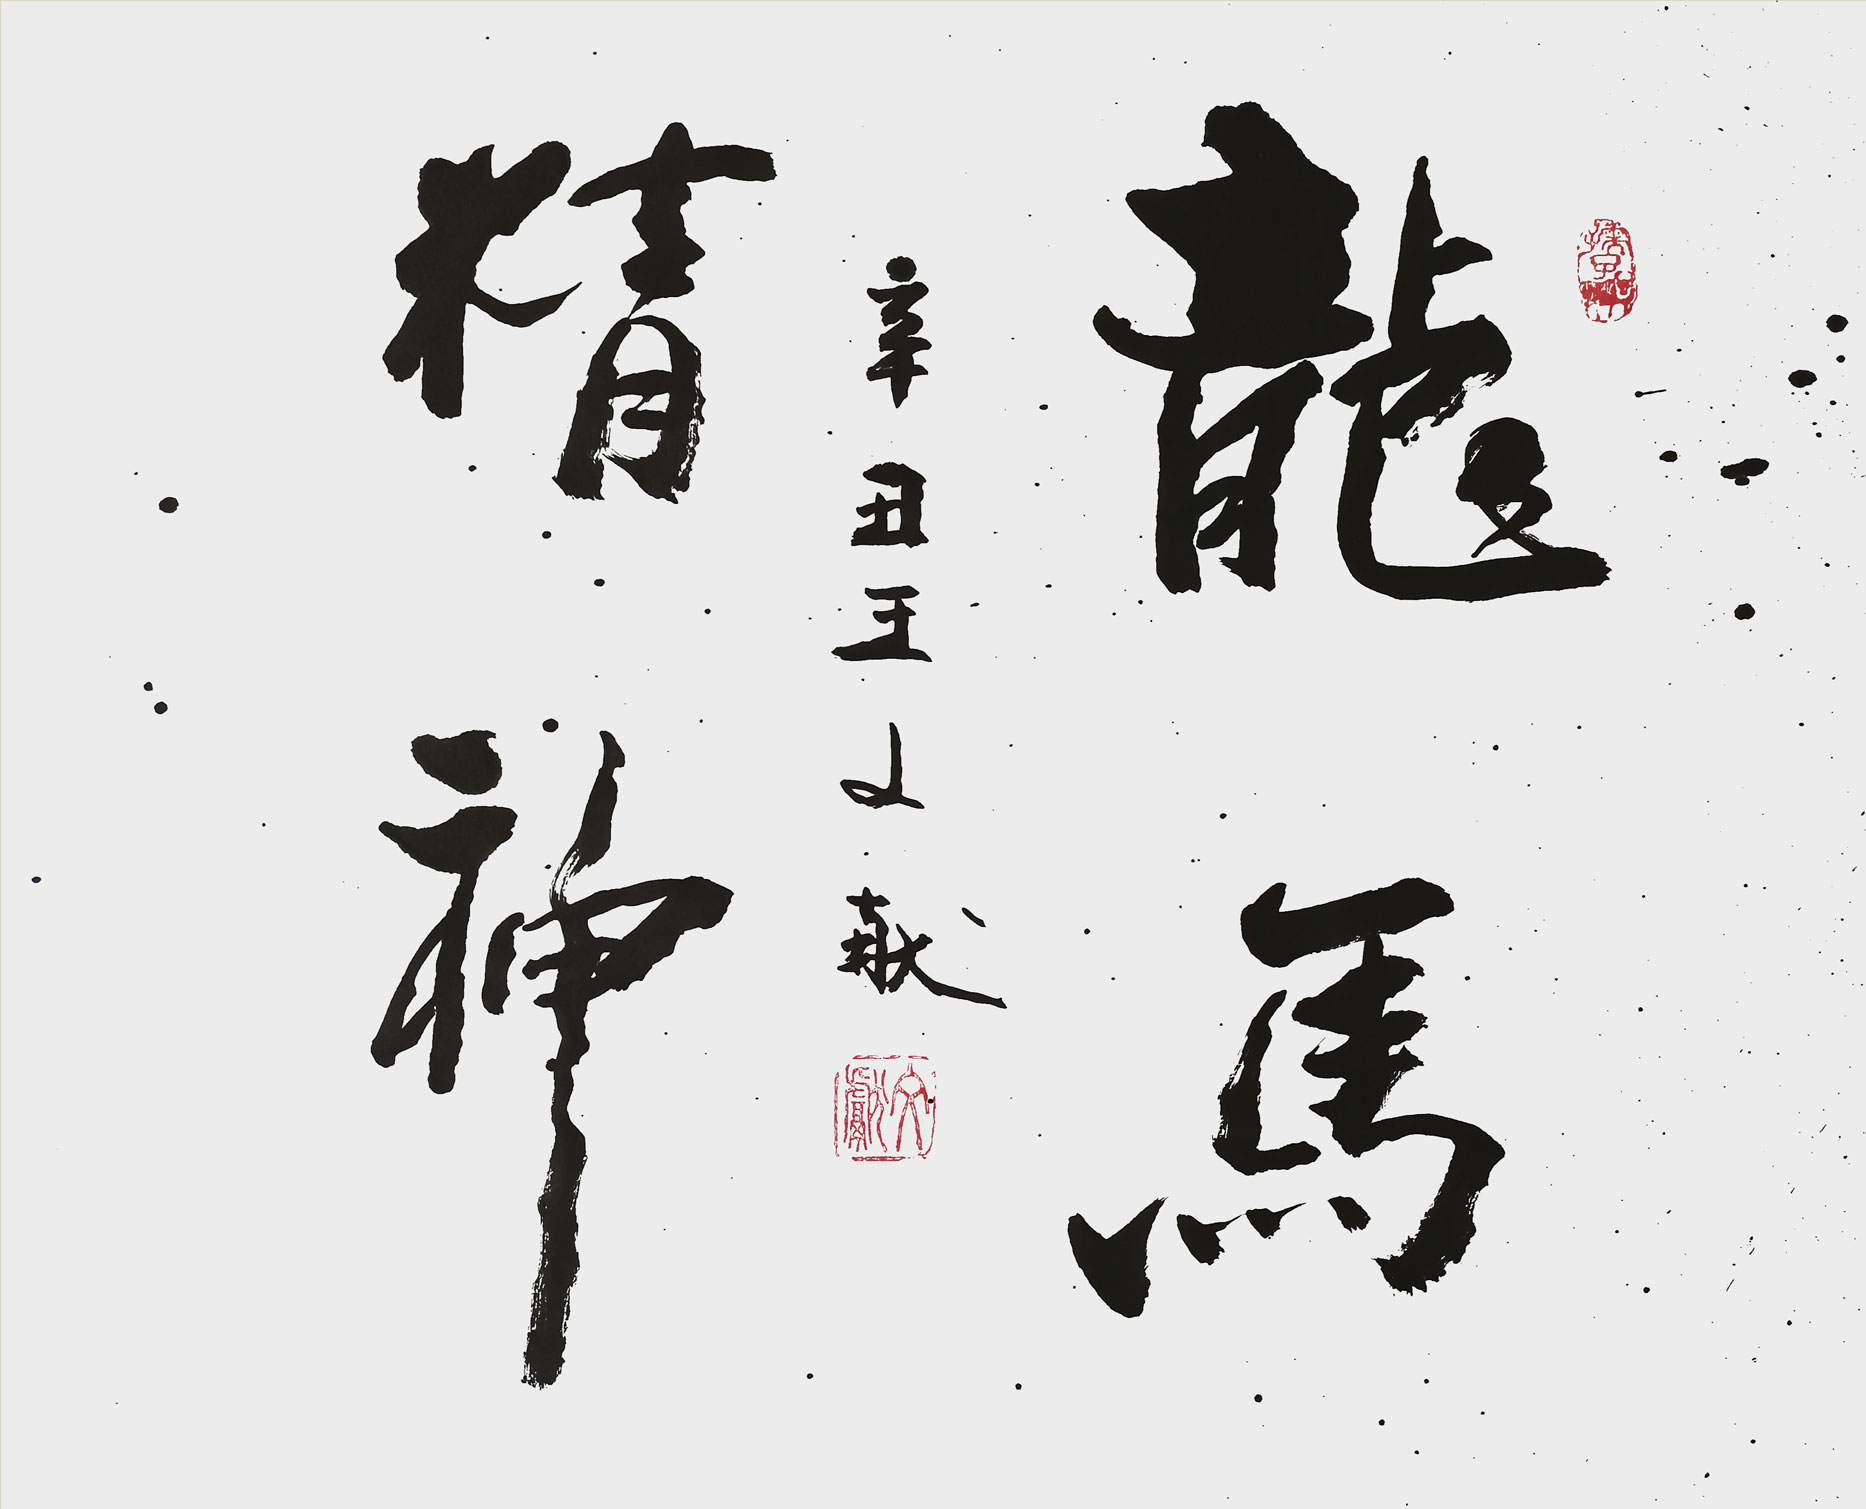 龍馬
辛丑王文献
精神
文獻